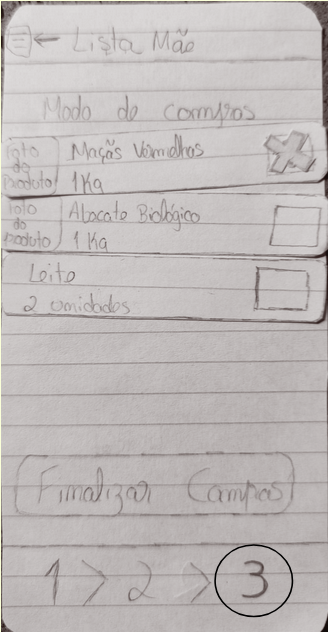 ← Lista Mãe
Modo de compras
Foto do Produto
Maçãs Vermelhas
1 Kg
Foto do Produto
Abacate Biológico
1 Kg
Leite
2 unidades
Finalizar Compras
1 > 2 > 3